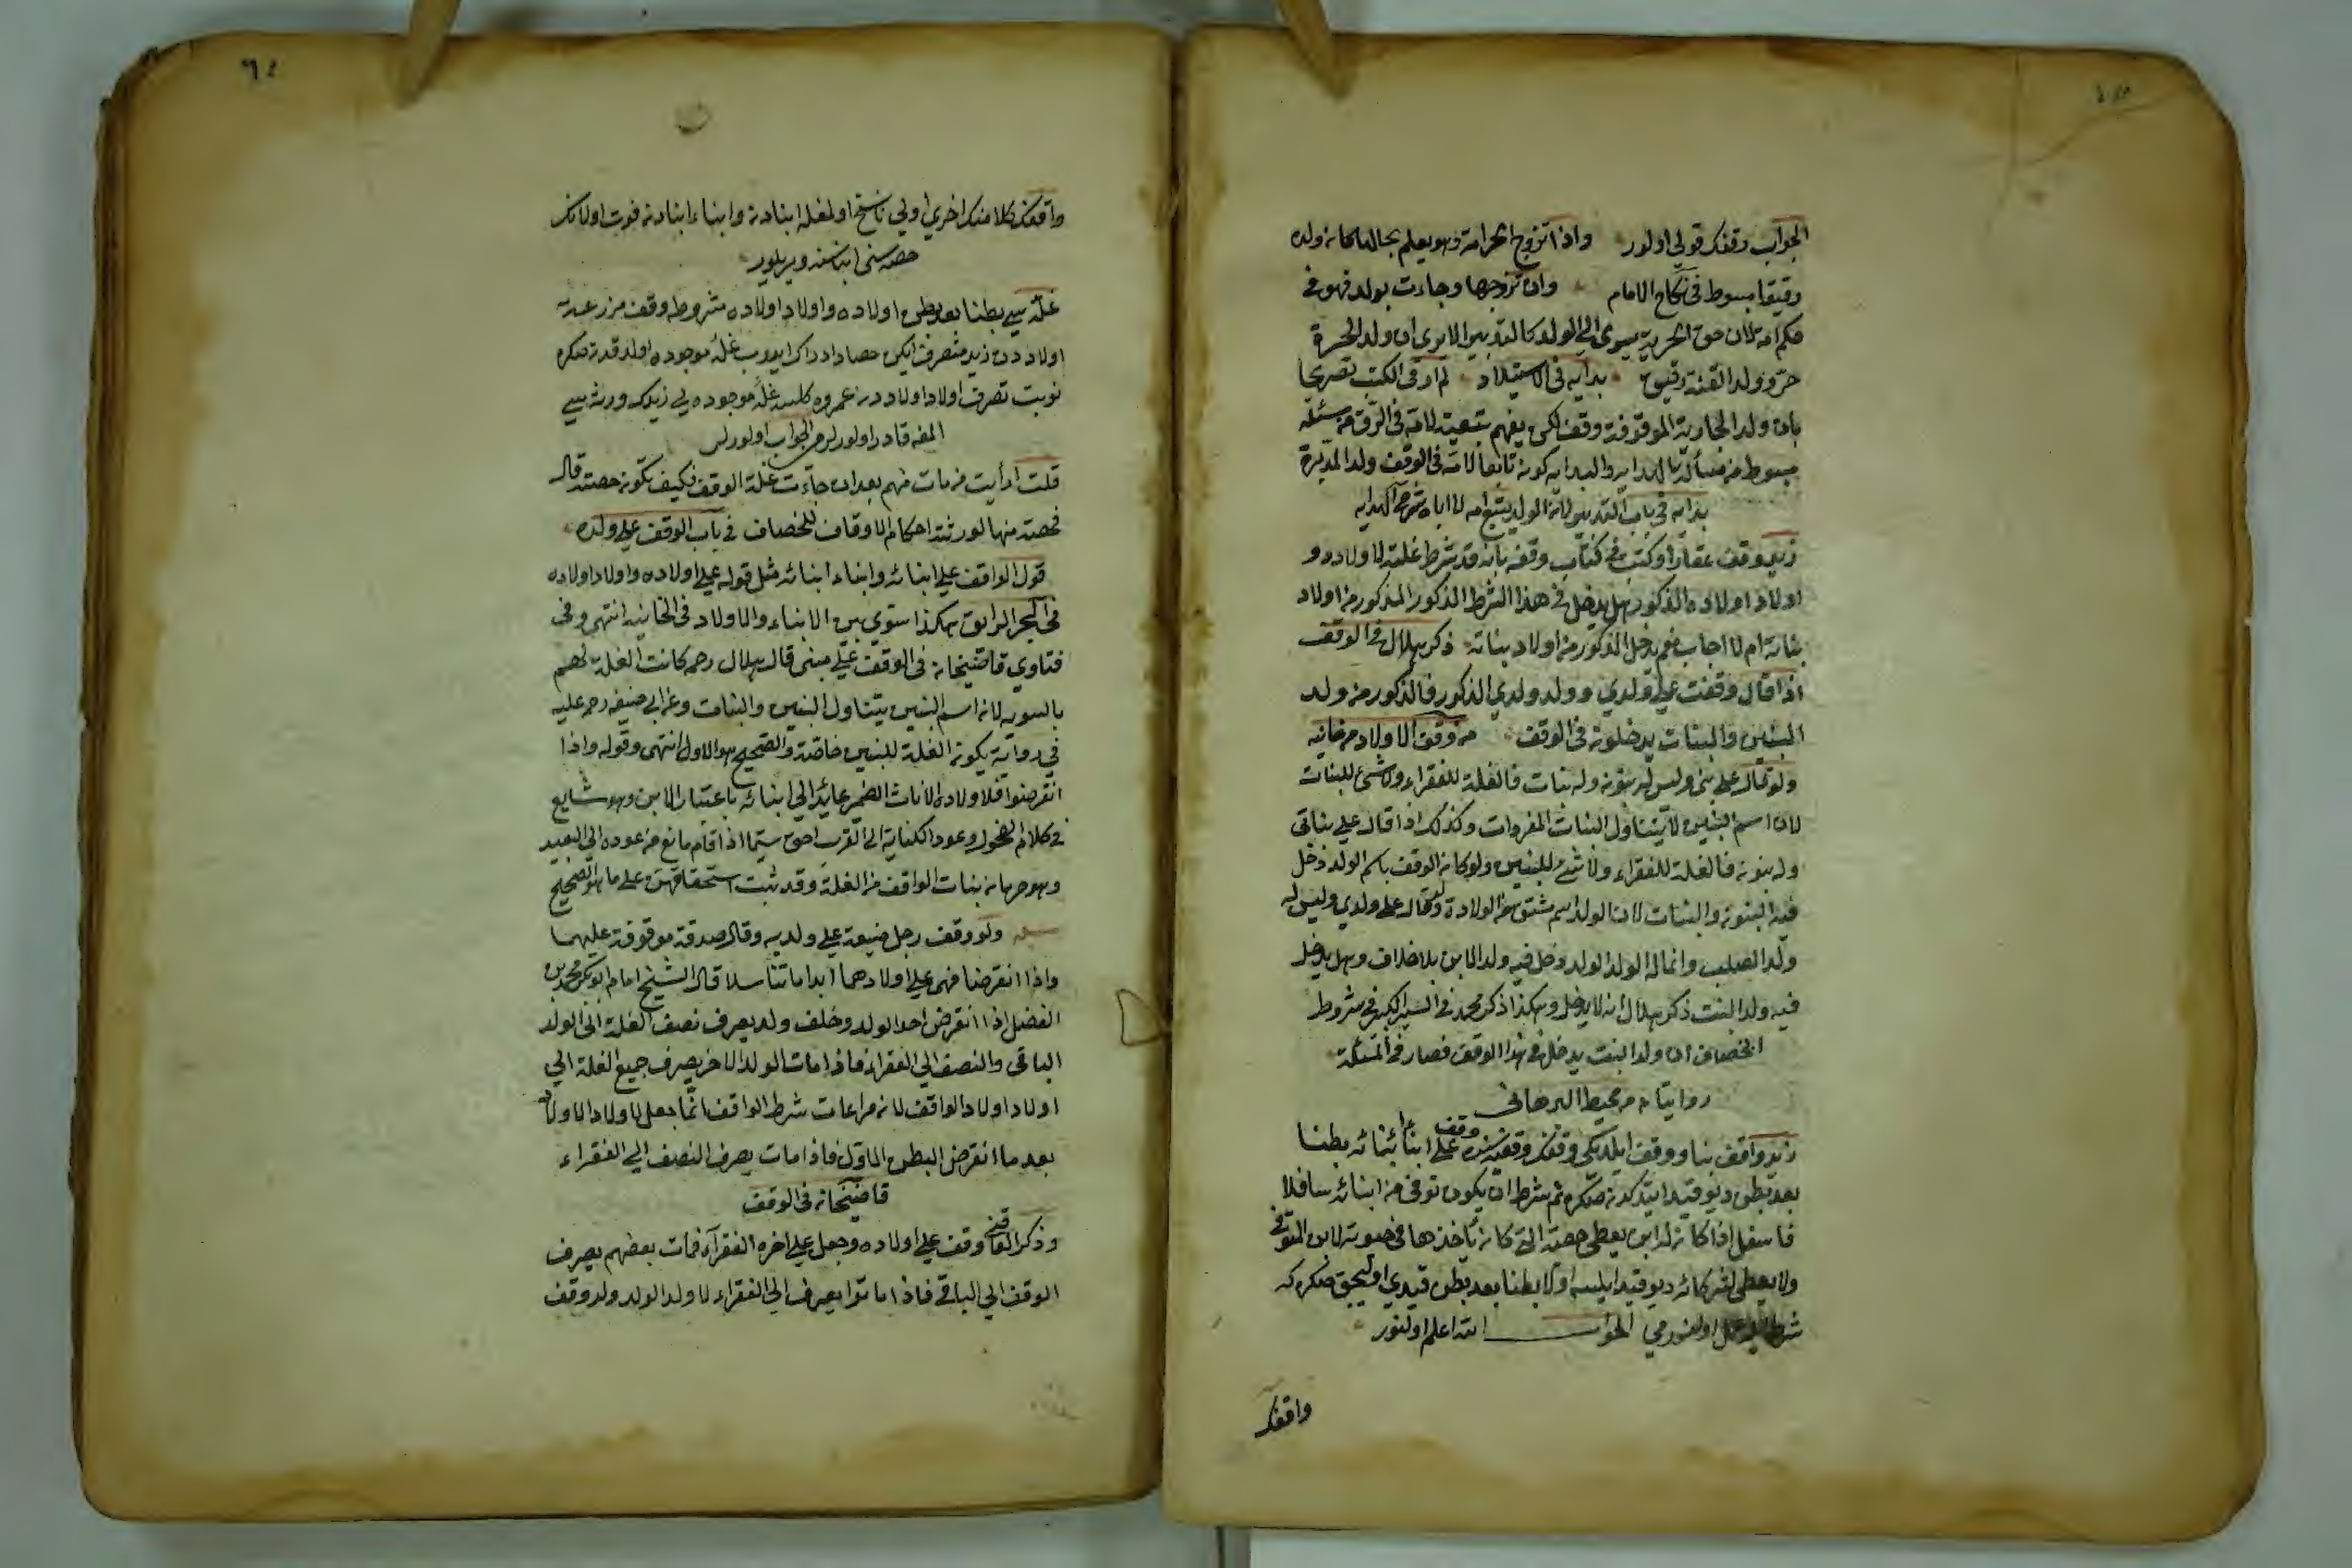 الجواب وقفك قولي اولور واذا تزوج الحر امة وهو يعلم بحالها كان ولده
رقيقا مبسوط في نكاح الامام وان تزوجها وجاءت بولد فهو في
حكم امه لان حق الحرية يسري الى الولد كالتدبير الا يرى ان ولد الحرة
حر وولد القنة رقيق بدايه في الاستيلاد لم ار في الكتب تصريحا
بان ولد الجارية الموقوفة وقف لكن يفهم بتبعية لامه في الرق من مسئله
مبسوط من مسألة الهدايه والبدايه كونه تابعا لامه في الوقف ولد المدبرة
بدايه في باب التدبير لان الولد يتبع امه لا اباه شرح الهدايه
زيد وقف عقارا وكتب في كتاب وقفه بانه قد شرط غلته لاولاده و
اولاد اولاده الذكور هل يدخل في هذا الشرط الذكور المذكور من اولاد
بناته ام لا اجاب نعم يدخل الذكور من اولاد بناته ذكر هلال في الوقف
اذا قال وقفت على ولدي وولد ولدي الذكور فالذكور من ولد
البنين والبنات يدخلون في الوقف من وقف الاولاد من خانيه
ولو قال على بني وليس له بنون وله بنات فالغلة للفقراء ولا شئ للبنات
لان اسم البنين لا يتناول البنات المفردات وكذلك اذا قال على بناتي
وله بنون فالغلة للفقراء ولا شئ للبنين ولو كان الوقف باسم الولد دخل
فيه البنون والبنات لان الولد اسم مشتق من الولادة ولو قال على ولدي وليس له
ولد الصلب وانما له الولد الولد دخل فيه ولد الابن بلا خلاف وهل يدخل
فيه ولد البنت ذكر هلال انه لا يدخل وهكذا ذكر محمد في السير الكبير في شروط
الخصاف ان ولد البنت يدخل في هذا الوقف فصار في المسئلة
روايتان من محيط البرهاني
زيد واقف بنا ووقف ايلديكى وقفك وقفيه سنده وقف على ابناء ابنائه بطنا
بعد بطن ديو قيد ايتدكدن صكره ثم شرط ان يكون توفى من ابنائه سافلا
فاسفل اذا كان له ابن يعطى حصته التي كان يأخذها في حيوته لابن المتوفى
ولا يعطى لغير كائه ديو قيد ايليسه اولا بطنا بعد بطن قيدي اوليجق صكره كه
شرط اولنور مي الجواب الله اعلم اولنور
واقفك
٦٤
واقفك كلامنك اخري اولي ناسخ اولمغله ابنادن وابناء ابنادن فوت اولانك
حصه سى ابناسنه ويريلور
غلة سي بطنا بعد بطن اولاده واولاد اولاده مشروطه وقف مزرعه
اولاددن زيد متصرف ايكن حصاد ادراك ايدوب غله موجوده اولدقدن صكره
نوبت تصرف اولاد اولاددن عمروه كلسه غله موجوده يي زيدك ورثه سي
المغه قادر اولورلر مي الجواب اولورلر
قلت ارأيت من مات منهم بعد ان جاءت غلة الوقف فكيف تكون حصته قال
فحصته منها لورثته احكام الاوقاف للخصاف في باب الوقف على ولده
قول الواقف على ابنائه وابناء ابنائه مثل قوله على اولاده واولاد اولاده
في البحر الرايق هكذا ستوي بين الابناء والاولاد في الخانيه انتهى وفى
فتاوي قاضيخان في الوقف على مبنى قال هلال رحمه كانت الغلة لهم
بالسويه لان اسم البنين يتناول البنين والبنات وعن ابي حنيفه رحمه عليه
في رواية يكون الغلة للبنين خاصة والصحيح هو الاول انتهى وقوله واذا
انقرضوا فلاولاده الاناث الضمير عايد الى ابنائه باعتبار الابن وهو شايع
في كلام الفحول وعود الكناية الى القرب احق سيما اذا قام مانع من عوده الى البعيد
وهو حرمان بنات الواقف من الغلة وقد ثبت استحقاقهن على ما هو الصحيح
ولو وقف رجل ضيعة على ولديه وقال صدقة موقوفة عليهما
واذا انقرضا فهى على اولادهما ابدا ما تناسلا قال الشيخ امام ابو بكر محمد بن
الفضل اذا انقرض احد الولد وخلف ولد يصرف نصف الغلة الى الولد
الباقى والنصف الي الفقراء فاذا مات الولد الاخر يصرف جميع الغلة الي
اولاد اولاد الواقف لان مراعات شرط الواقف انما جعل لاولاد الاولاد
بعد ما انقرض البطن الاول فاذا مات يصرف النصف الي الفقراء
قاضيخان في الوقف
وذكر القاضى وقف على اولاده وجعل على اخره الفقراء فمات بعضهم يصرف
الوقف الي الباقي فاذا ماتوا يصرف الى الفقراء لا ولد الولد ولو وقف